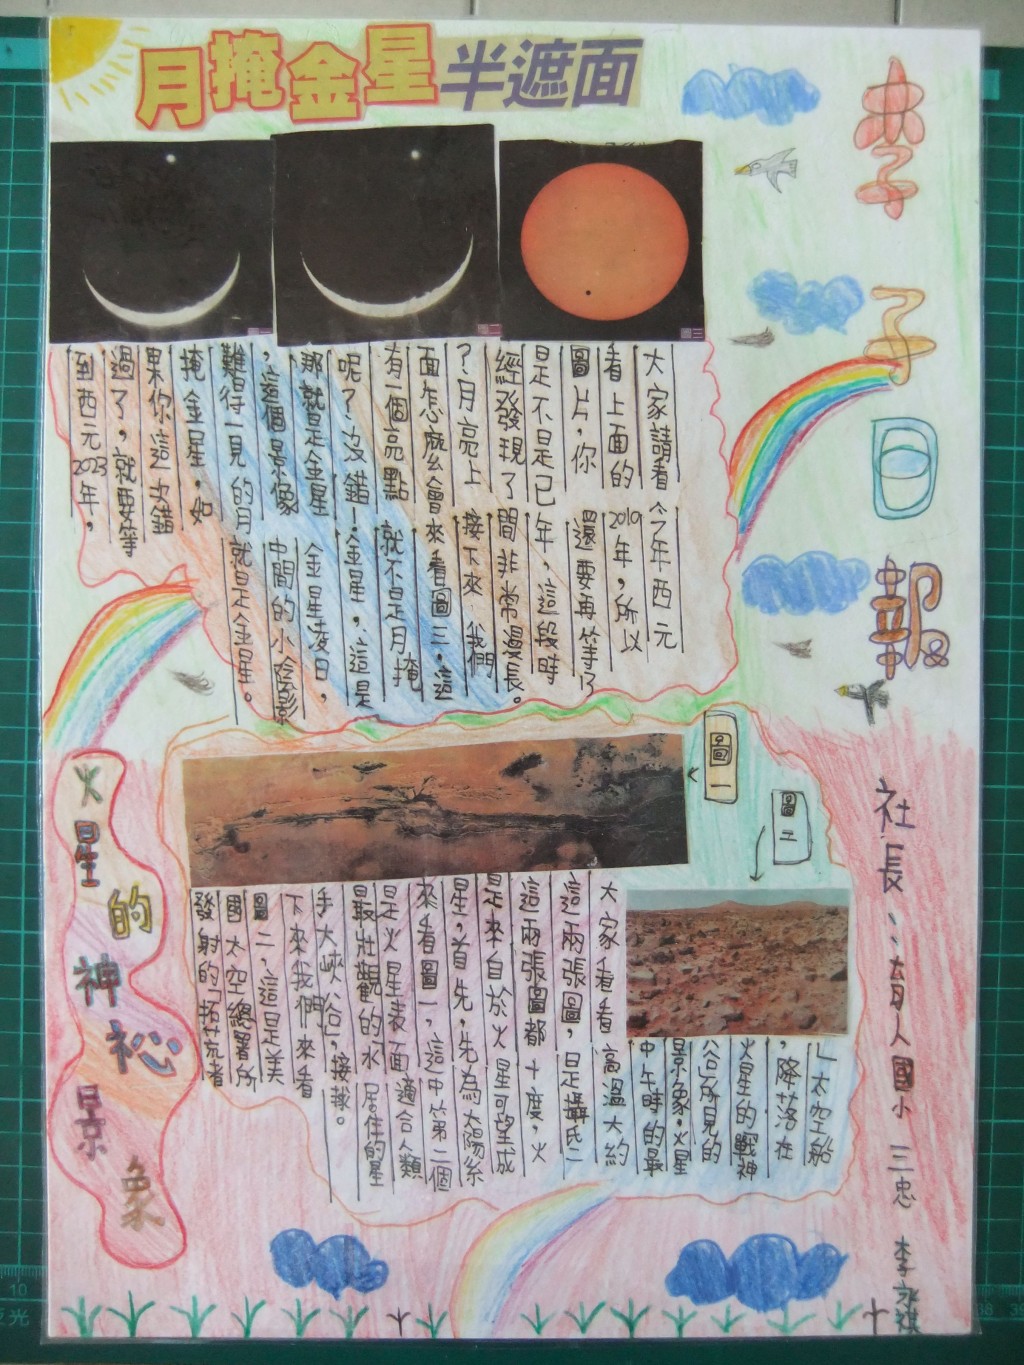 月掩金星半遮面
李子日報
社長：育人國小 三忠 李永祺
大家請看
看上面的
圖片，你
是不是已
經發現了
？月亮上
面怎麼會
有一個亮點
呢？沒錯！
那就是金星
，這個景像
難得一見的月
掩金星，如
果你這次錯
過了，就要等
到西元2023年，
今年西元
2019年，所以
還要再等了
年，這段時
間非常漫長。
接下來我們
來看圖三，這
就不是月掩
金星，這是
金星凌日，
中間的小陰影
就是金星。
圖一
圖二
火星的神祕景象
大家看看
這兩張圖，
這兩張圖都
是來自於火
星，首先，先
來看圖一，這
是火星表面
最壯觀的水
手大峽谷，接
下來我們來看
圖二，這是美
國太空總署所
發射的「拓荒者
」太空船
，降落在
火星的戰神
谷」所見的
景象，火星
中午時的最
高溫大約
是攝氏二
十度，火
星可望成
為太陽系
中第二個
適合人類
居住的星
球。